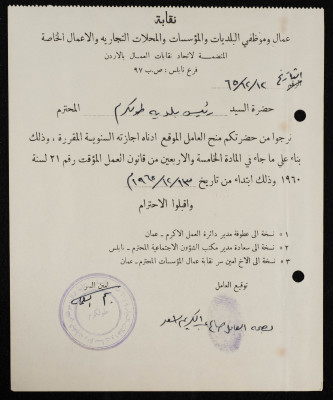 نقابة
عمال وموظفي البلديات والمؤسسات والمحلات التجاريه والاعمال الخاصة
المنضمة لاتحاد نقابات العمال بالاردن
فرع نابلس : ص.ب ٩٧
التاريخ ٦٥/١٢/١٢
حضرة السيد رئيس بلدية طولكرم المحترم
نرجوا من حضرتكم منح العامل الموقع ادناه اجازته السنوية المقررة ، وذلك
بناء على ما جاء في المادة الخامسة والاربعين من قانون العمل المؤقت رقم ٢١ لسنة
١٩٦٠ وذلك ابتداء من تاريخ ١٩٦٥/١٢/١٣م
واقبلوا الاحترام
١ - نسخة الى عطوفة مدير دائرة العمل الاكرم - عمان
٢ - نسخة الى سعادة مدير مكتب الشؤون الاجتماعية المحترم - نابلس
٣ - نسخة الى الاخ امين سر نقابة عمال المؤسسات المحترم - عمان
توقيع العامل
امين السر